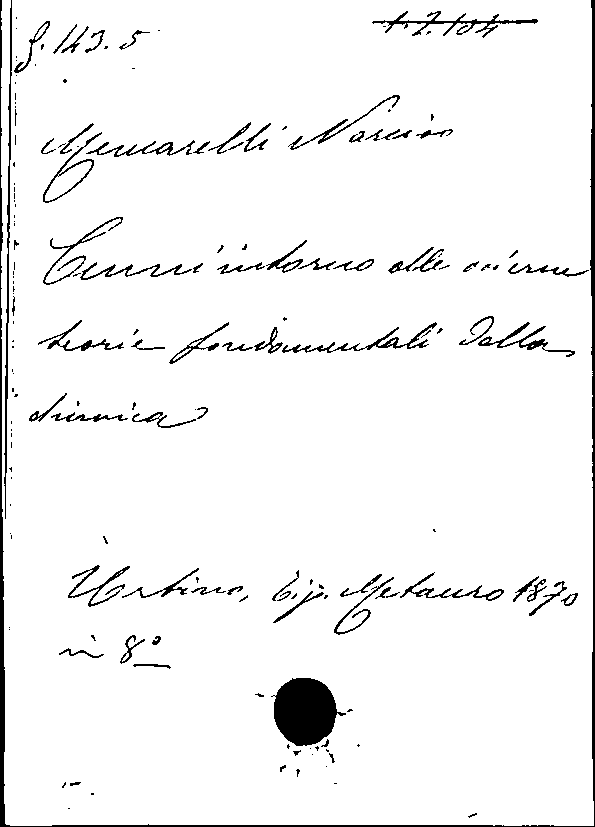 g. 143. 5
1. 7. 104
Mencarelli Narciso
Cenni intorno alle odierne
teorie fondamentali della
chimica
Urbino, Tip. Metauro 1870
in 8°